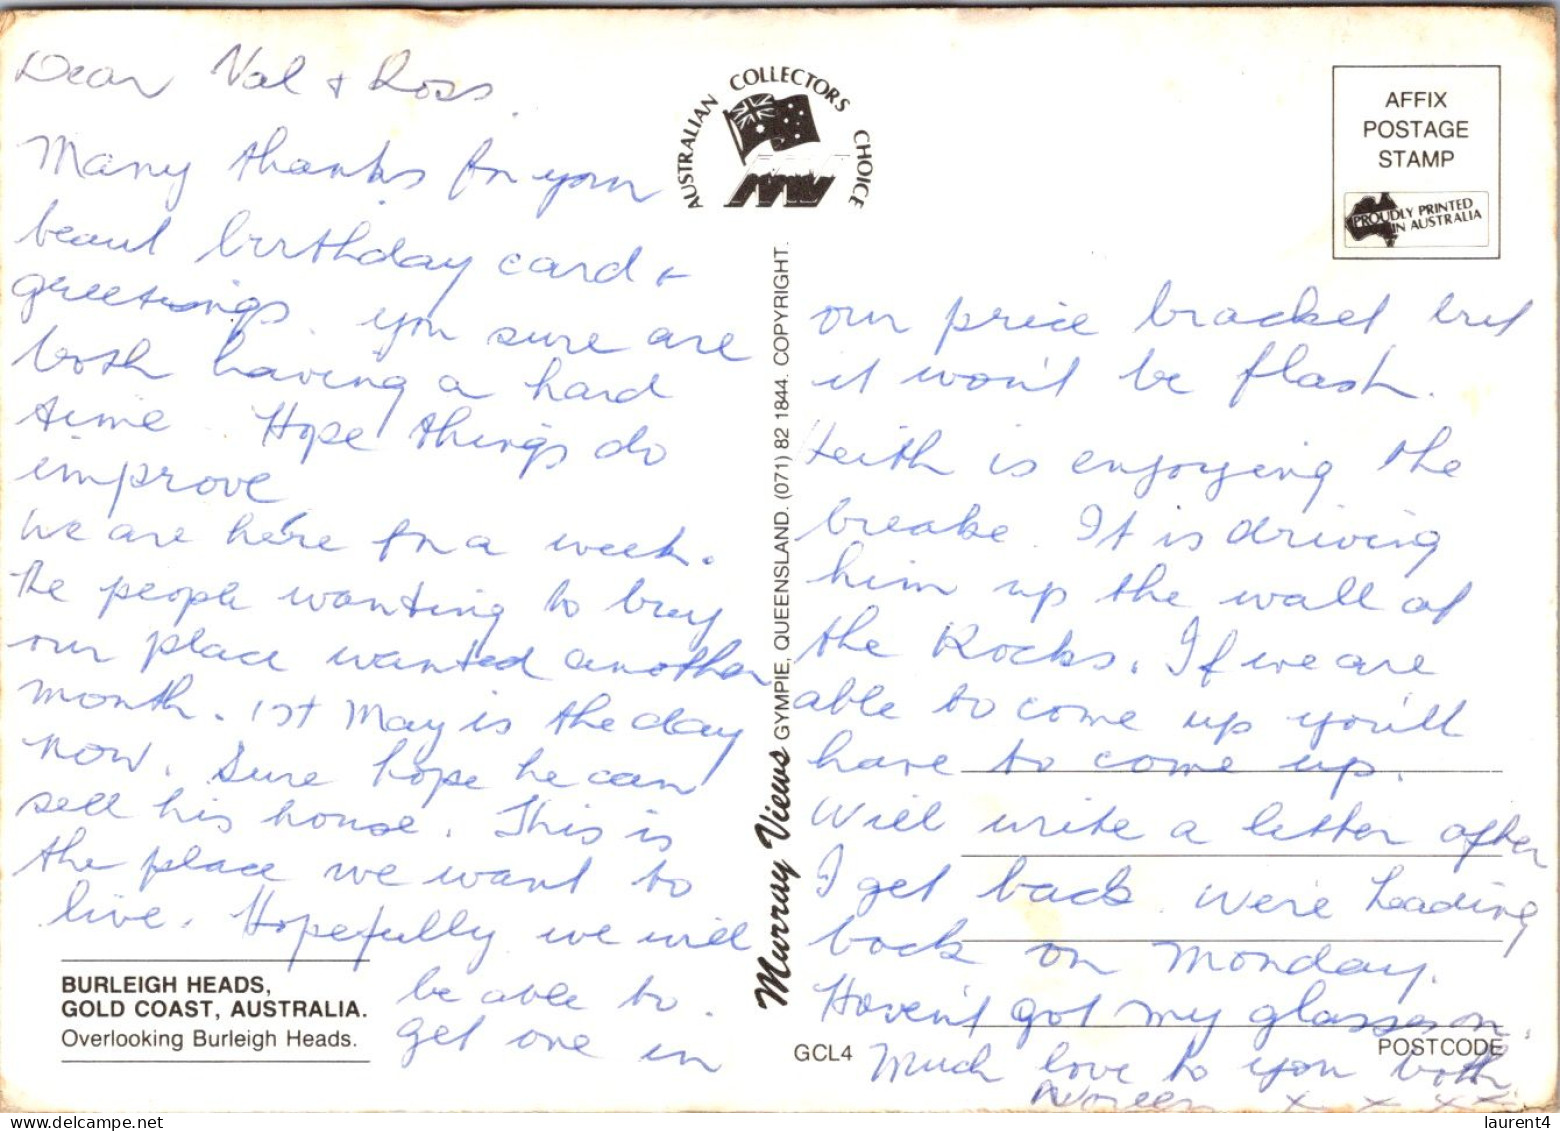 Dear Val + Ross.
Many thanks for your
beaut birthday card +
greetings. You sure are
both having a hard
time. Hope things do
improve
We are here for a week.
The people wanting to buy
our place wanted another
month. 1st May is the day
now. Sure hope he can
sell his house. This is
the place we want to
live. Hopefully we will
be able to.
get one in
BURLEIGH HEADS,
GOLD COAST, AUSTRALIA.
Overlooking Burleigh Heads.
AUSTRALIAN COLLECTORS CHOICE
Murray Views GYMPIE, QUEENSLAND. (071) 82 1844. COPYRIGHT.
GCL4
AFFIX
POSTAGE
STAMP
PROUDLY PRINTED
IN AUSTRALIA
our price bracket but
it won't be flash.
Keith is enjoying the
breake. It is driving
him up the wall at
the Rocks. If we are
able to come up you'll
have to come up.
Will write a letter after
I get back. We're heading
back on Monday.
Haven't got my glasses on.
POSTCODE
Much love to you both
Noreen x x x x x
laurent4